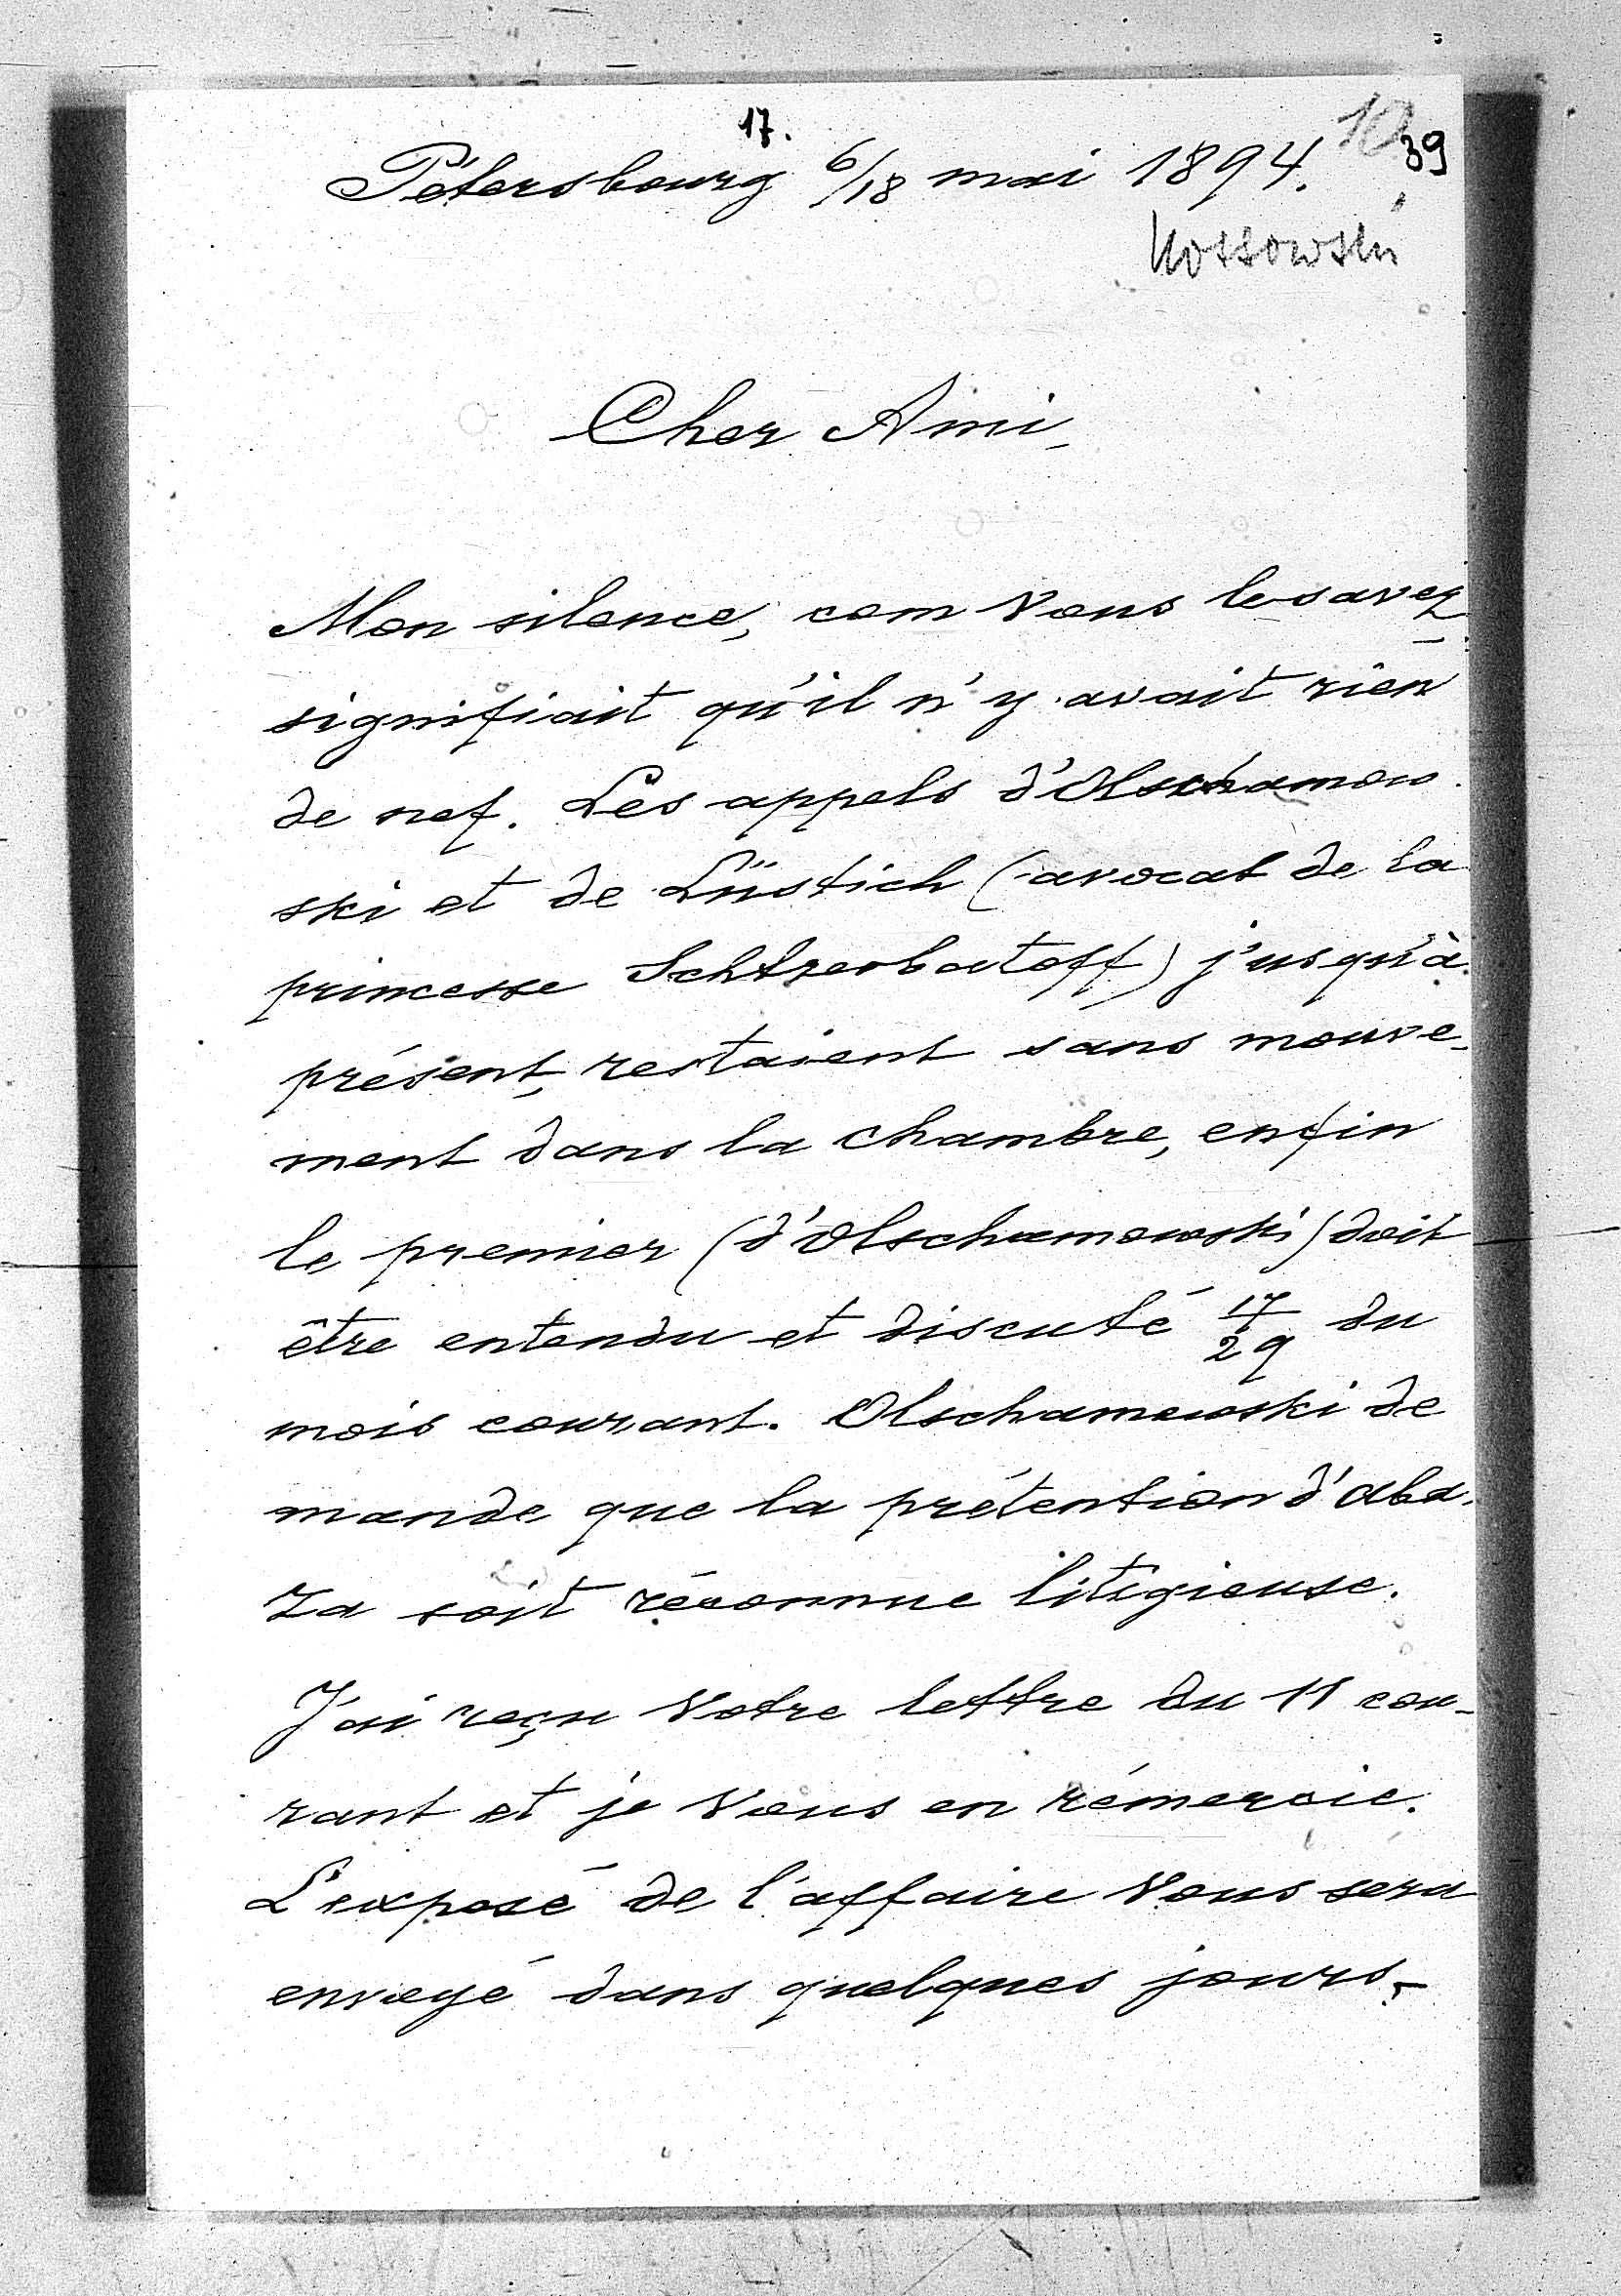 17.
Pétersbourg 6/18 mai 1894.
39
Kossowski
Cher Ami,
Mon silence, com Vous le savez
signifiait qu'il n'y avait rien
de nef. Les appels d'Olschamow
ski et de Lüstich (avocat de la
princesse Schtzerbatoff) j'usqu'à
présent, restaient sans mouve-
ment dans la chambre, enfin
le premier (d'Olschamowski) doit
être entendu et discuté 17/29 du
mois courant. Olschamowski de
mande que la prétention d'Aba-
za soit réconnue litigieuse.
J'ai reçu Votre lettre du 11 cou-
rant et je Vous en rémercie.
L'exposé de l'affaire Vous sera
envoyé dans quelques jours.-